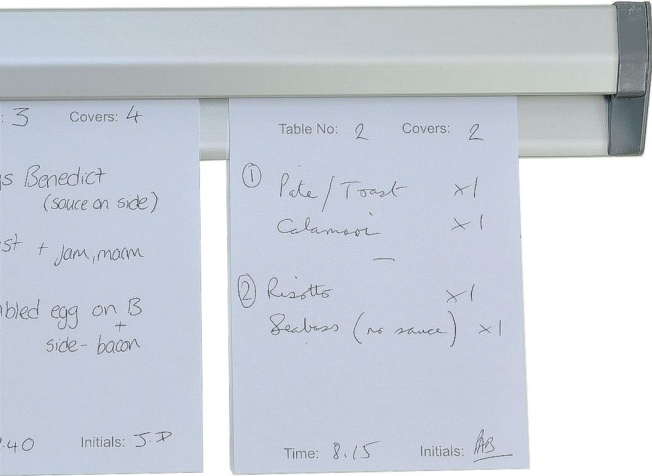 : 3 Covers: 4
s Benedict
(sauce on side)
st + jam, marm
bled egg on B
+
side - bacon
.40 Initials: J.P
Table No: 2 Covers: 2
① Pate / Toast x1
Calamari x1
—
② Risotto x1
Seabass (no sauce) x1
Time: 8.15 Initials: AB